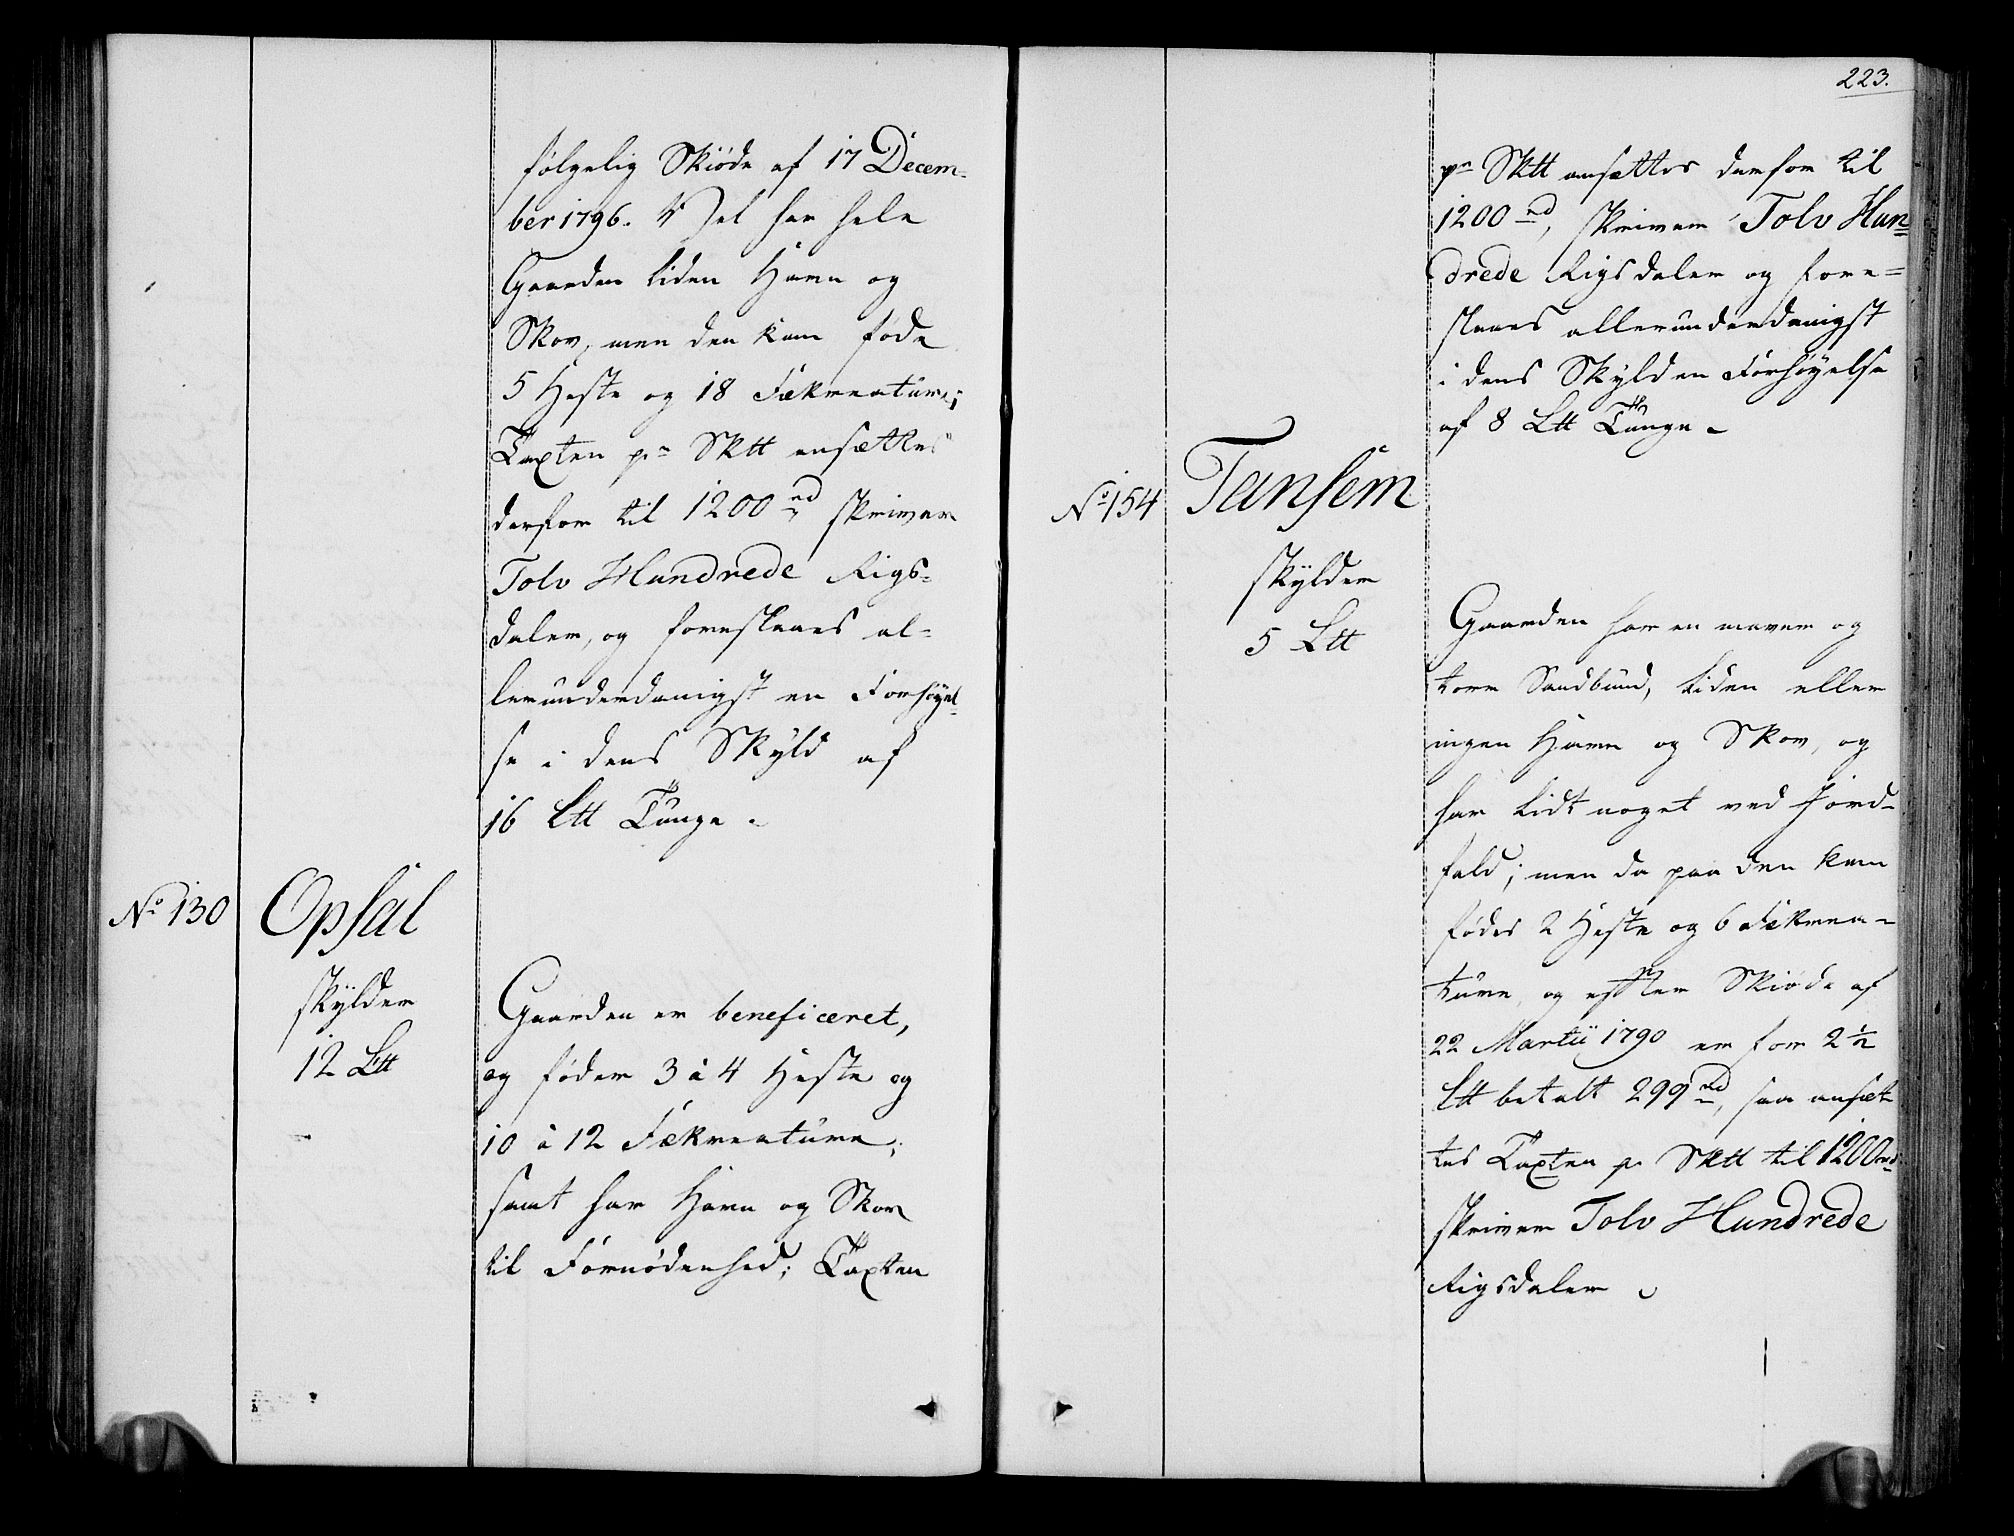 følgelig Skiøde af 17 Decem-
ber 1796. Vel har hele
Gaarden liden Havn og
Skov, men den kan føde
5 Heste og 18 Fækreature;
Taxten pr Sktt ansættes
derfor til 1200 rd, skriver
Tolv Hundrede Rigs-
daler, og foreslaaes al-
lerunderdanigst en Forhøyel-
se i dens Skyld af
16 Ltt Tunge.
No 130
Opsal
skylder
12 Ltt
Gaarden er beneficeret,
og føder 3 à 4 Heste og
10 à 12 Fækreature,
samt har Havn og Skov
til Fornødenhed; Taxten
223.
pr Sktt ansættes derfor til
1200 rd, skriver Tolv Hun-
drede Rigsdaler og fore=
slaaes allerunderdanigst
i dens Skyld en Forhøyelse
af 8 Ltt Tunge.
No 154
Tansem
skylder
5 Ltt
Gaarden har en maver og
tørr Sandbund, liden eller
ingen Havn og Skov, og
har lidt noget ved Jord-
fald; men da paa den kan
fødes 2 Heste og 6 Fækrea-
ture, og efter Skiøde af
22 Martii 1790 er for 2 1/2
Ltt betalt 299 rd, saa ansæt-
tes Taxten pr Sktt til 1200 rd
skriver Tolv Hundrede
Rigsdaler